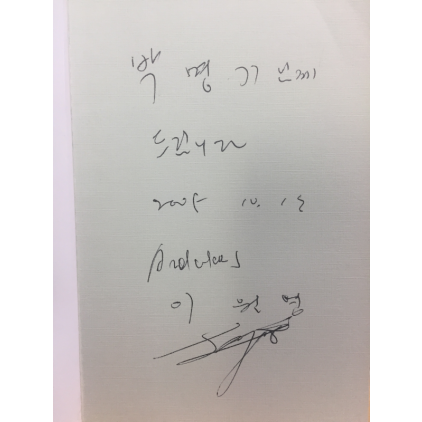 박 명 기 님께
드립니다
2005 10. 15
Andreas
이 원 영